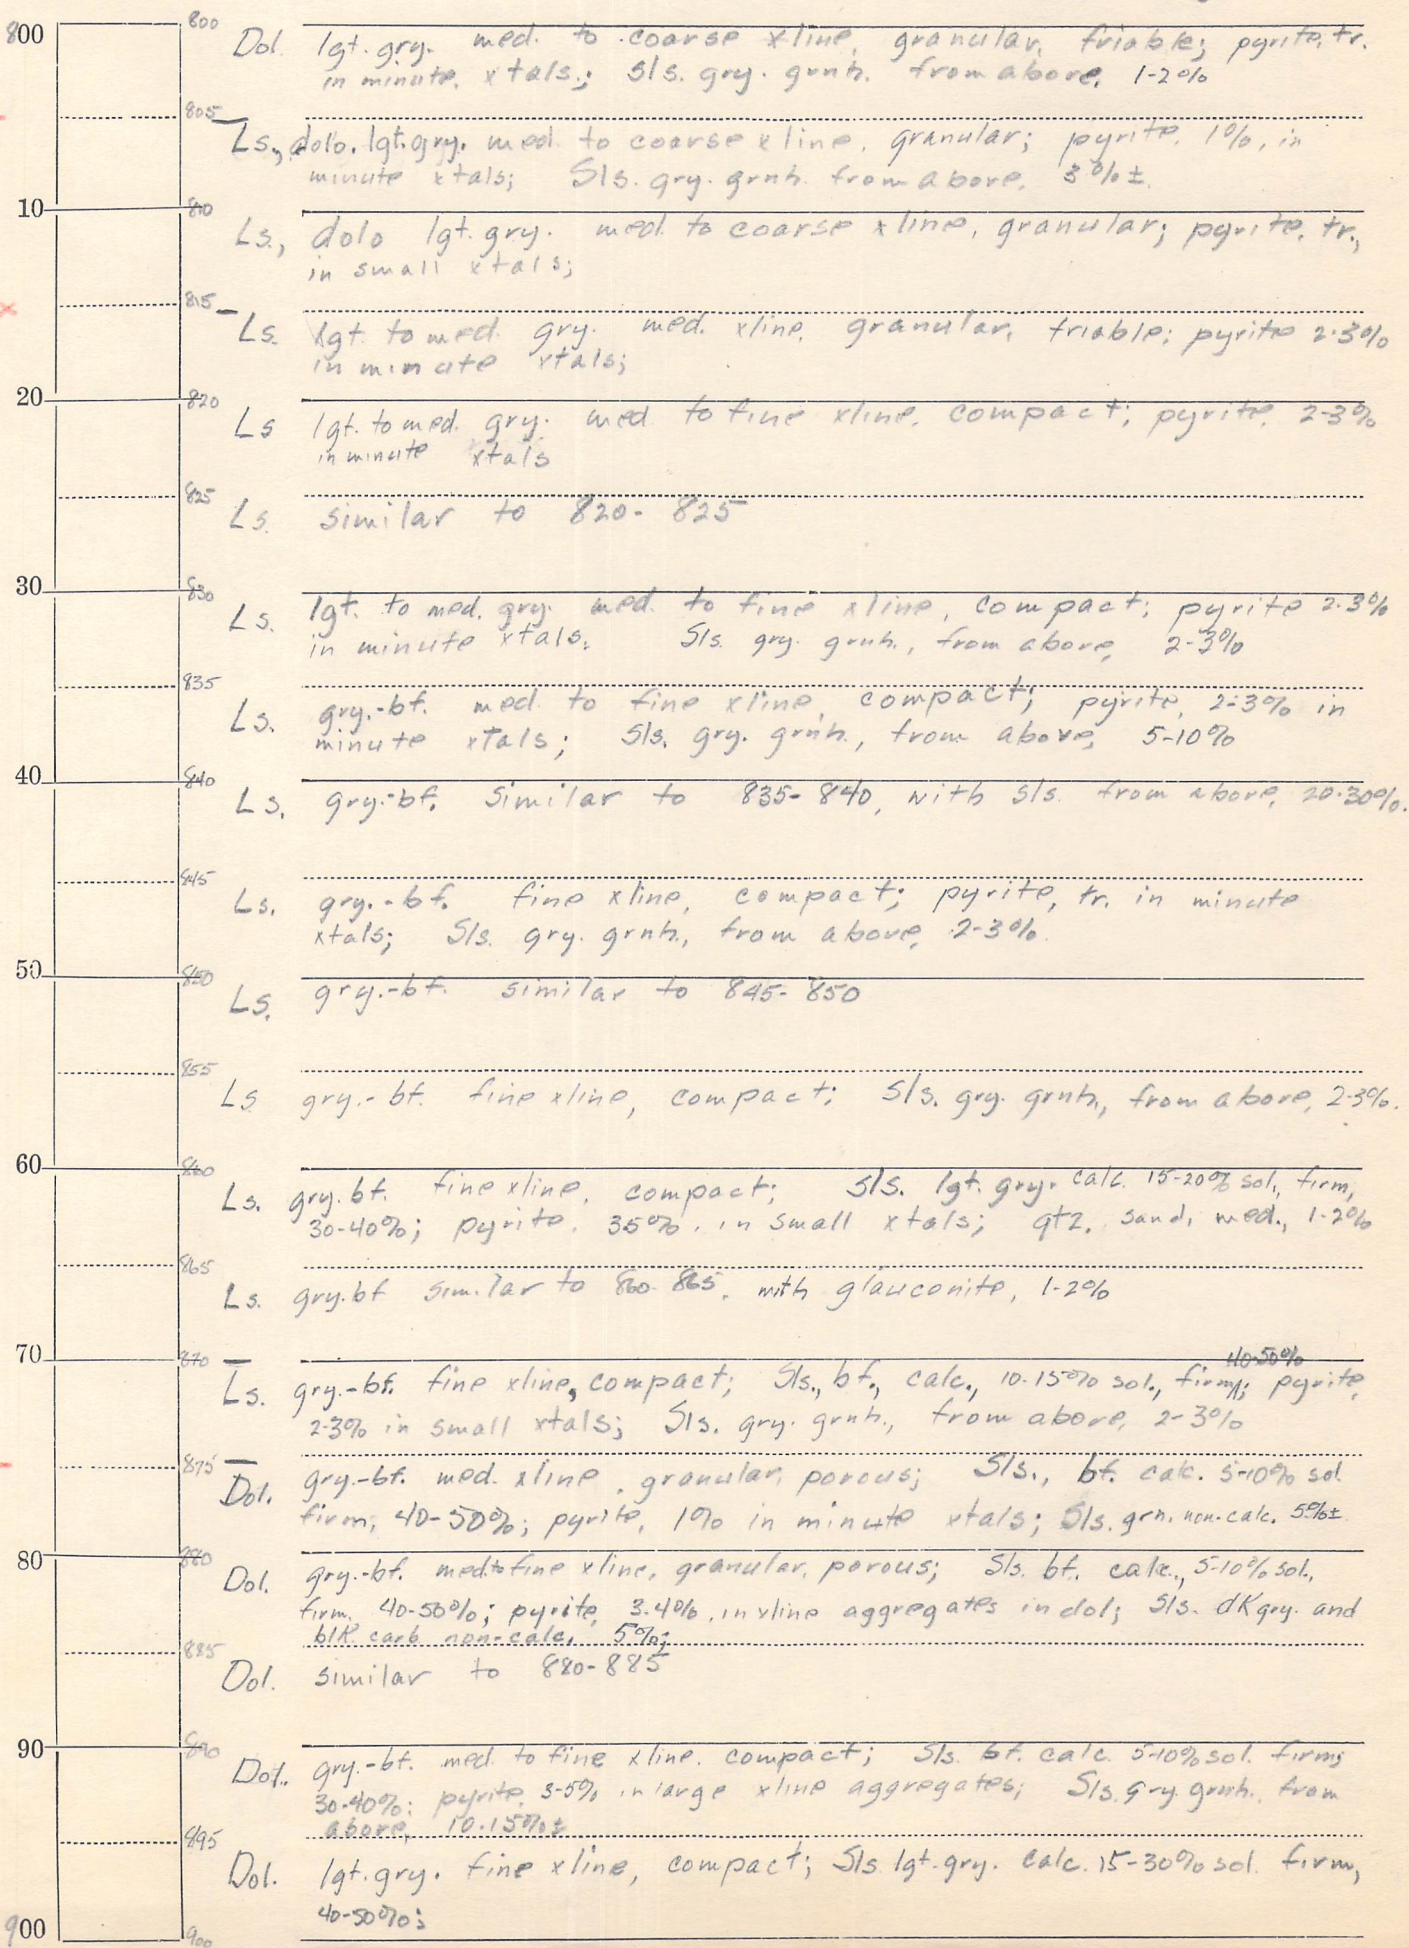 800 800
Dol. lgt. gry. med. to coarse xline, granular, friable; pyrite, tr.
in minute, xtals.; Sls. gry. grnh. from above, 1-2%
805
Ls., dolo. lgt. gry. med. to coarse xline, granular; pyrite, 1%, in
minute xtals; Sls. gry. grnh. from above, 3%±.
10 810
Ls., dolo lgt. gry. med. to coarse xline, granular; pyrite, tr.,
in small xtals;
815
Ls. lgt. to med. gry. med. xline, granular, friable; pyrite 2-3%
in minute xtals;
20 820
Ls lgt. to med. gry. med to fine xline, compact; pyrite, 2-3%
in minute xtals
825
Ls. similar to 820-825
30 830
Ls. lgt. to med. gry. med. to fine xline, compact; pyrite 2-3%
in minute xtals. Sls. gry. grnh., from above, 2-3%
835
Ls. gry.-bf. med. to fine xline, compact; pyrite, 2-3% in
minute xtals; Sls. gry. grnh., from above, 5-10%
40 840
Ls. gry.-bf. similar to 835-840, with sls. from above, 20-30%.
845
Ls. gry.-bf. fine xline, compact; pyrite, tr. in minute
xtals; Sls. gry. grnh., from above, 2-3%.
50 850
Ls. gry.-bf. similar to 845-850
855
Ls gry.-bf. fine xline, compact; Sls. gry. grnh., from above, 2-3%.
60 860
Ls. gry. bf. fine xline, compact; Sls. lgt. gry. calc. 15-20% sol., firm,
30-40%; pyrite, 35%, in small xtals; qtz. sand, med., 1-2%
865
Ls. gry. bf similar to 860-865, with glauconite, 1-2%
70 870
40-50%
Ls. gry.-bf. fine xline, compact; Sls., bf., calc., 10-15% sol., firm; pyrite,
2-3% in small xtals; Sls. gry. grnh., from above, 2-3%
875
Dol. gry.-bf. med. xline, granular, porous; Sls., bf. calc. 5-10% sol
firm, 40-50%; pyrite, 1% in minute xtals; Sls. grn. non-calc. 5%±
80 880
Dol. gry.-bf. med. to fine xline, granular, porous; Sls. bf. calc., 5-10% sol.,
firm, 40-50%; pyrite, 3-4%, in xline aggregates in dol; Sls. dk gry. and
blk. carb. non-calc. 5%;
885
Dol. similar to 880-885
90 890
Dol. gry.-bf. med. to fine xline. compact; Sls. bf. calc. 5-10% sol. firm;
30-40%; pyrite, 3-5%, in large xline aggregates; Sls. gry grnh. from
above, 10-15%±
895
Dol. lgt. gry. fine xline, compact; Sls. lgt. gry. calc. 15-30% sol. firm,
40-50%;
900 900